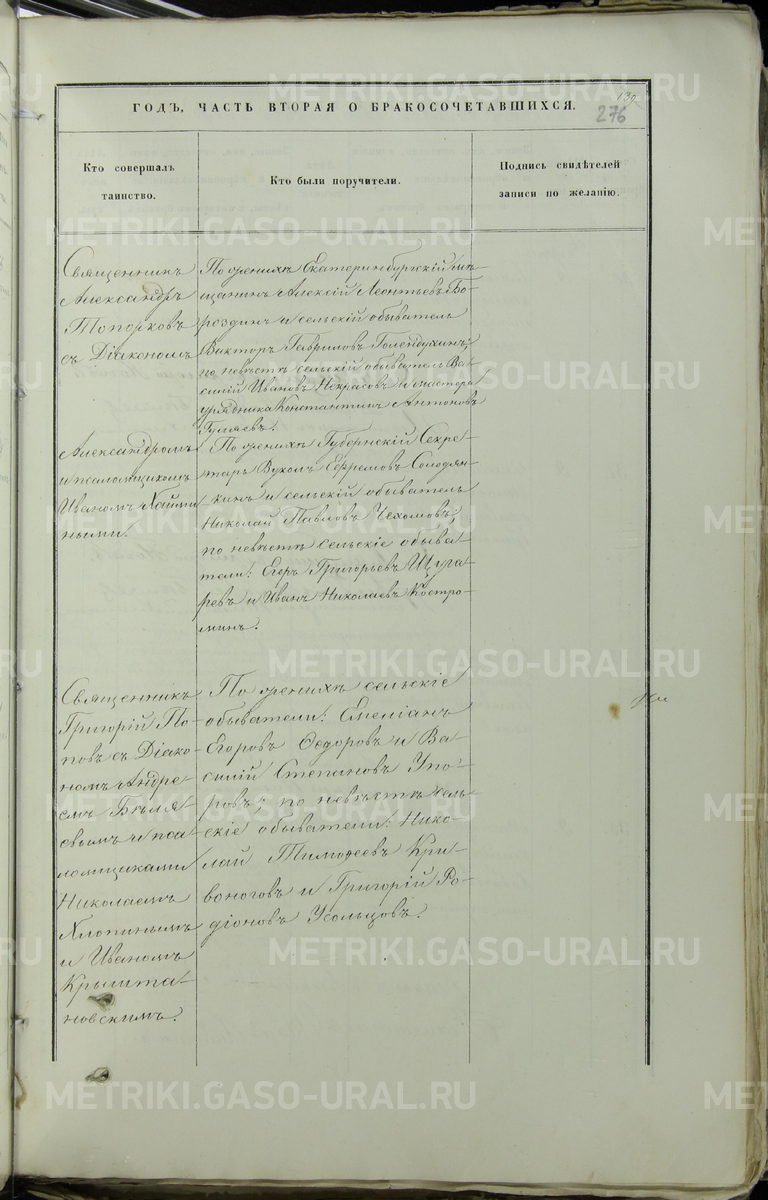 139
276
ГОДЪ, ЧАСТЬ ВТОРАЯ О БРАКОСОЧЕТАВШИХСЯ.
Кто совершалъ
таинство.
Кто были поручители.
Подпись свидѣтелей
записи по желанію.
Священникъ
Александръ
Топорковъ
съ Діакономъ
Александромъ
и псаломщикомъ
Иваномъ
ными.
По женихѣ Екатеринбургскій мѣ-
щанинъ Алексій Леонтьевъ Бо-
роздинъ и сельскій обыватель
Викторъ Гавриловъ Голендухинъ;
по невѣстѣ сельскій обыватель Ва-
силій Ивановъ Некрасовъ и мастеръ
урядника Константинъ Антоновъ
Гуляевъ.
По женихѣ Губернскій Секре-
тарь Вуколъ Ефремовъ Солодян-
кинъ и сельскій обыватель
Николай Павловъ Чехомовъ;
по невѣстѣ сельскіе обыва-
тели: Егоръ Григорьевъ Щуга-
ревъ и Иванъ Николаевъ Костро-
минъ.
Священникъ
Григорій По-
повъ съ Діако-
номъ Андре-
емъ Бѣля-
евымъ и пса-
ломщиками
Николаемъ
Хлопинымъ
и Иваномъ
Крышта-
новскимъ.
По женихѣ сельскіе
обыватели: Емеліанъ
Егоровъ Ѳедоровъ и Ва-
силій Степановъ Упо-
ровъ; по невѣстѣ сель-
скіе обыватели: Нико-
лай Тимофеевъ Кри-
воноговъ и Григорій Ро-
діоновъ Усольцовъ.
METRIKI.GASO-URAL.RU